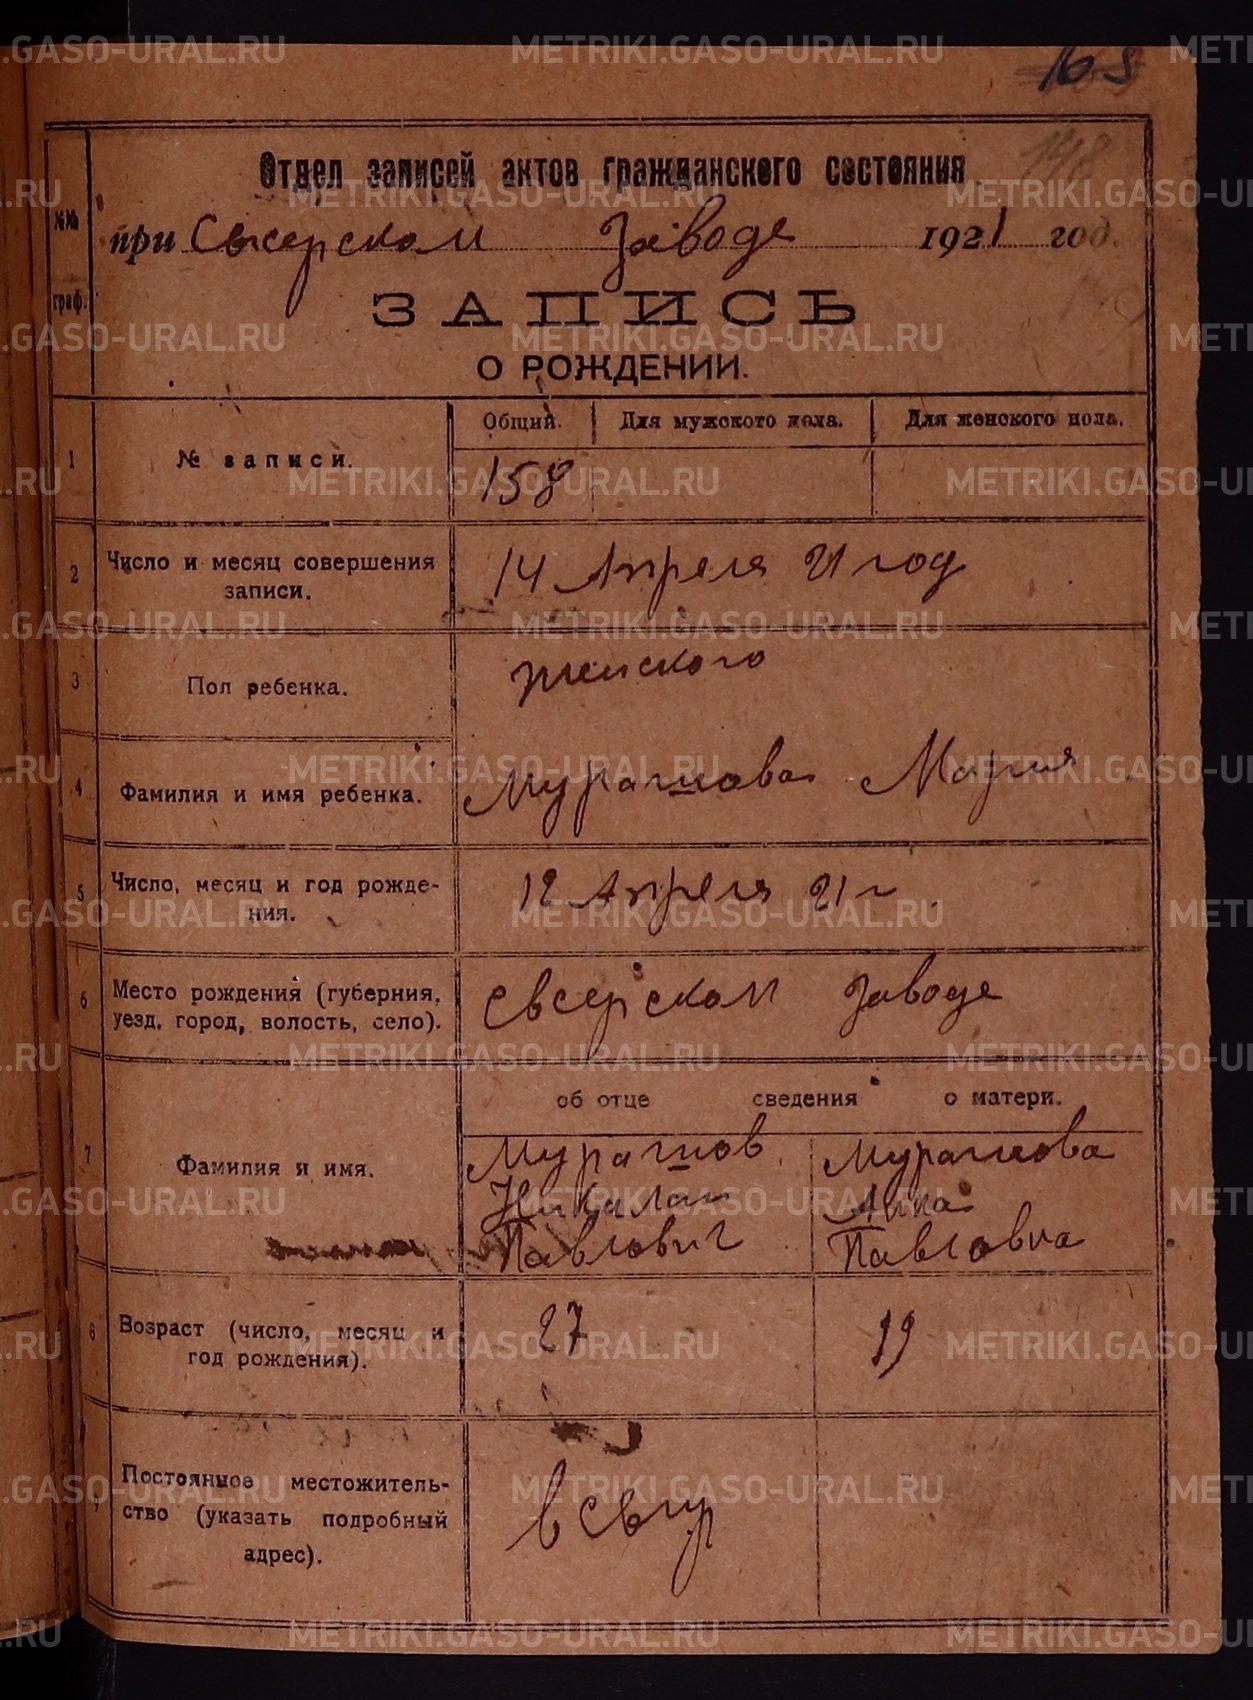 163
148
Отдел записей актов гражданского состояния
при Сысерском Заводе 1921 год.
№№ граф.
ЗАПИСЬ
О РОЖДЕНИИ.
Общий. Для мужского пола. Для женского пола.
1 № записи. 158
2 Число и месяц совершения записи. 14 Апреля 21 год
3 Пол ребенка. женского
4 Фамилия и имя ребенка. Мурашова Мария
5 Число, месяц и год рождения. 12 Апреля 21 г
6 Место рождения (губерния, уезд, город, волость, село). Сысерском Заводе
об отце сведения о матери.
7 Фамилия и имя. Мурашов Николай Павлович Мурашова Анна Павловна
8 Возраст (число, месяц и год рождения). 27 19
Постоянное местожительство (указать подробный адрес). в Сыср
METRIKI.GASO-URAL.RU